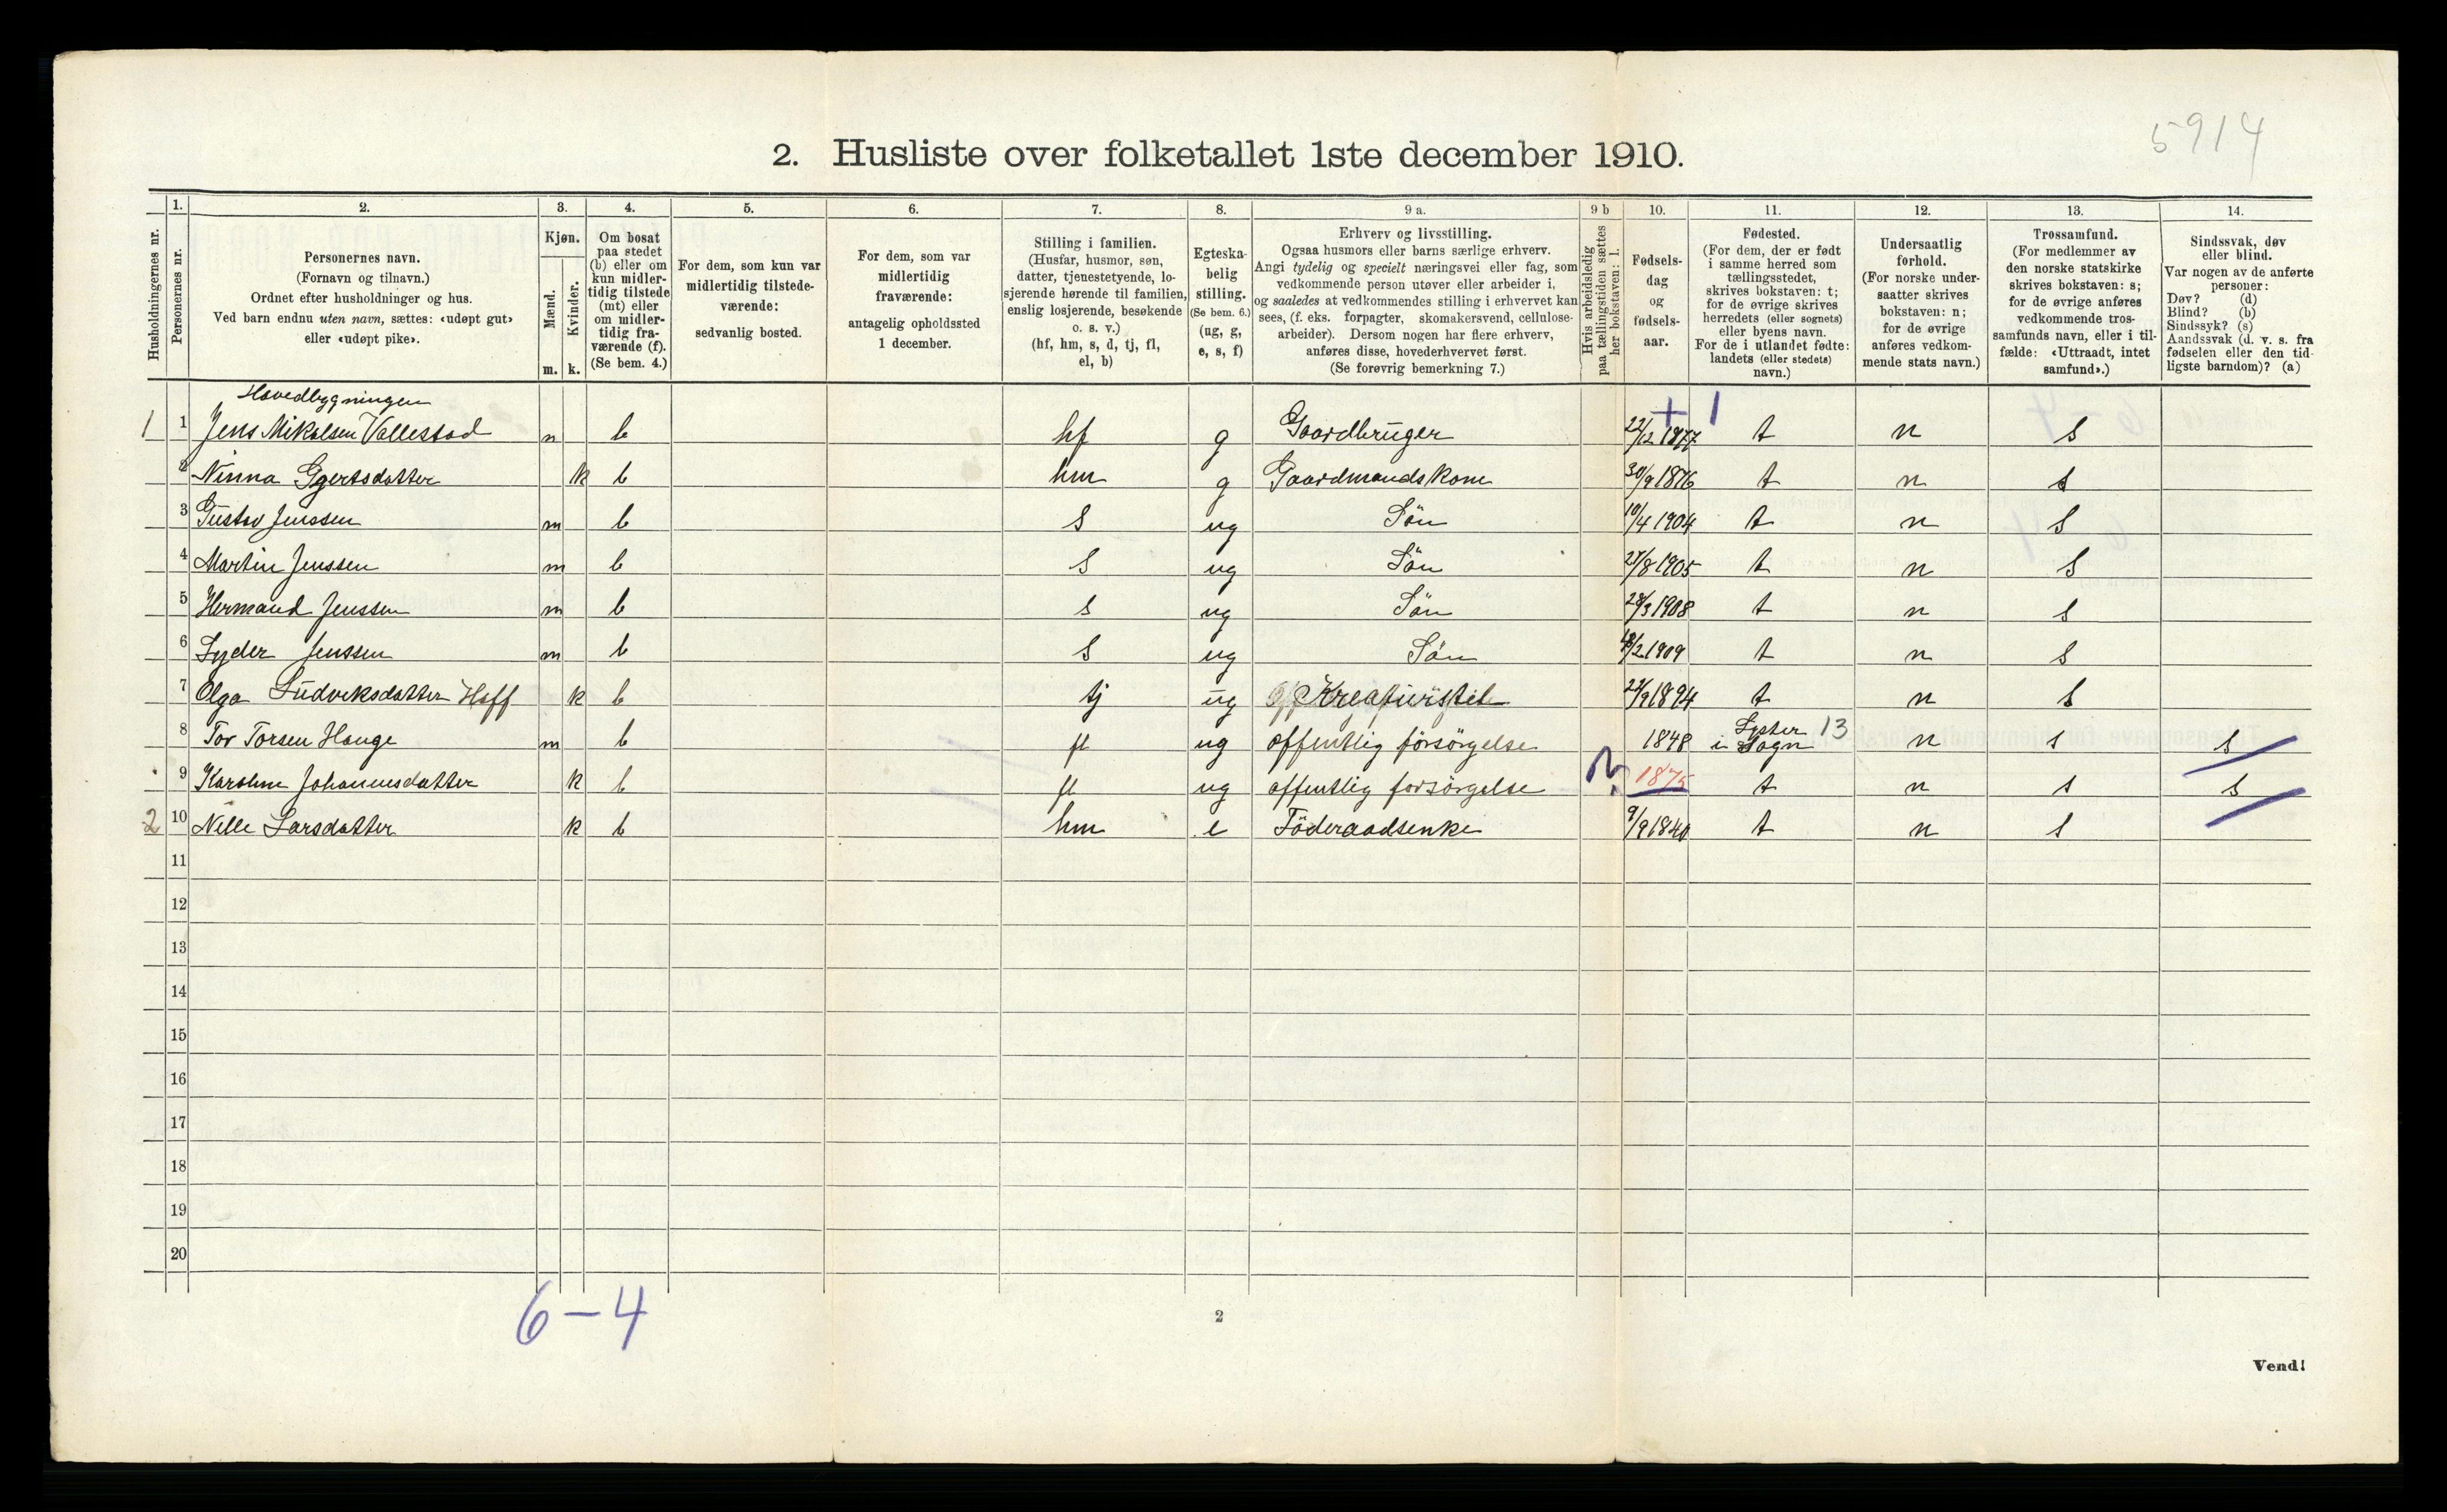 5914
2. Husliste over folketallet 1ste december 1910.
Husholdningernes nr.
1.
Personernes nr.
2.
Personernes navn.
(Fornavn og tilnavn.)
Ordnet efter husholdninger og hus.
Ved barn endnu uten navn, sættes: «udøpt gut»
eller «udøpt pike».
3.
Kjøn.
Mænd.
Kvinder.
m. k.
4.
Om bosat
paa stedet
(b) eller om
kun midler-
tidig tilstede
(mt) eller
om midler-
tidig fra-
værende (f).
(Se bem. 4.)
5.
For dem, som kun var
midlertidig tilstede-
værende:
sedvanlig bosted.
6.
For dem, som var
midlertidig
fraværende:
antagelig opholdssted
1 december.
7.
Stilling i familien.
(Husfar, husmor, søn,
datter, tjenestetyende, lo-
sjerende hørende til familien,
enslig losjerende, besøkende
o. s. v.)
(hf, hm, s, d, tj, fl,
el, b)
8.
Egteska-
belig
stilling.
(Se bem. 6.)
(ug, g,
e, s, f)
9 a.
Erhverv og livsstilling.
Ogsaa husmors eller barns særlige erhverv.
Angi tydelig og specielt næringsvei eller fag, som
vedkommende person utøver eller arbeider i,
og saaledes at vedkommendes stilling i erhvervet kan
sees, (f. eks. forpagter, skomakersvend, cellulose-
arbeider). Dersom nogen har flere erhverv,
anføres disse, hovederhvervet først.
(Se forøvrig bemerkning 7.)
9 b
Hvis arbeidsledig
paa tællingstiden sættes
her bokstaven: l.
10.
Fødsels-
dag
og
fødsels-
aar.
11.
Fødested.
(For dem, der er født
i samme herred som
tællingsstedet,
skrives bokstaven: t;
for de øvrige skrives
herredets (eller sognets)
eller byens navn.
For de i utlandet fødte:
landets (eller stedets)
navn.)
12.
Undersaatlig
forhold.
(For norske under-
saatter skrives
bokstaven: n;
for de øvrige
anføres vedkom-
mende stats navn.)
13.
Trossamfund.
(For medlemmer av
den norske statskirke
skrives bokstaven: s;
for de øvrige anføres
vedkommende tros-
samfunds navn, eller i til-
fælde: «Uttraadt, intet
samfund».)
14.
Sindssvak, døv
eller blind.
Var nogen av de anførte
personer:
Døv? (d)
Blind? (b)
Sindssyk? (s)
Aandssvak (d. v. s. fra
fødselen eller den tid-
ligste barndom)? (a)
Hovedbygningen
+ 1
1 1 Jens Mikalsen Vallestad m b hf g Gaardbruger 22/12 1877 t n s
2 Ninna Gjertsdatter k b hm g Gaardmandskone 30/9 1876 t n s
3 Gustav Jenssen m b s ug Sön 10/4 1904 t n s
4 Martin Jenssen m b s ug Sön 27/8 1905 t n s
5 Hermand Jenssen m b s ug Sön 28/3 1908 t n s
6 Lyder Jenssen m b s ug Sön 18/2 1909 t n s
7 Olga Ludvksdatter Hoff k b tj ug Kreaturstel 1894 t n s
8 Tor Torsen Hauge m b fl ug offentlig försörgelse 1848 Lyster i Sogn 13 n s s
9 Karoline Johannesdatter k b fl ug offentlig forsörgelse ? 1875 t n s s
2 10 Nille Larsdatter k b hm e Föderaadsenke 9/9 1840 t n s
11
12
13
14
15
16
17
18
19
20
6-4
2
Vend!